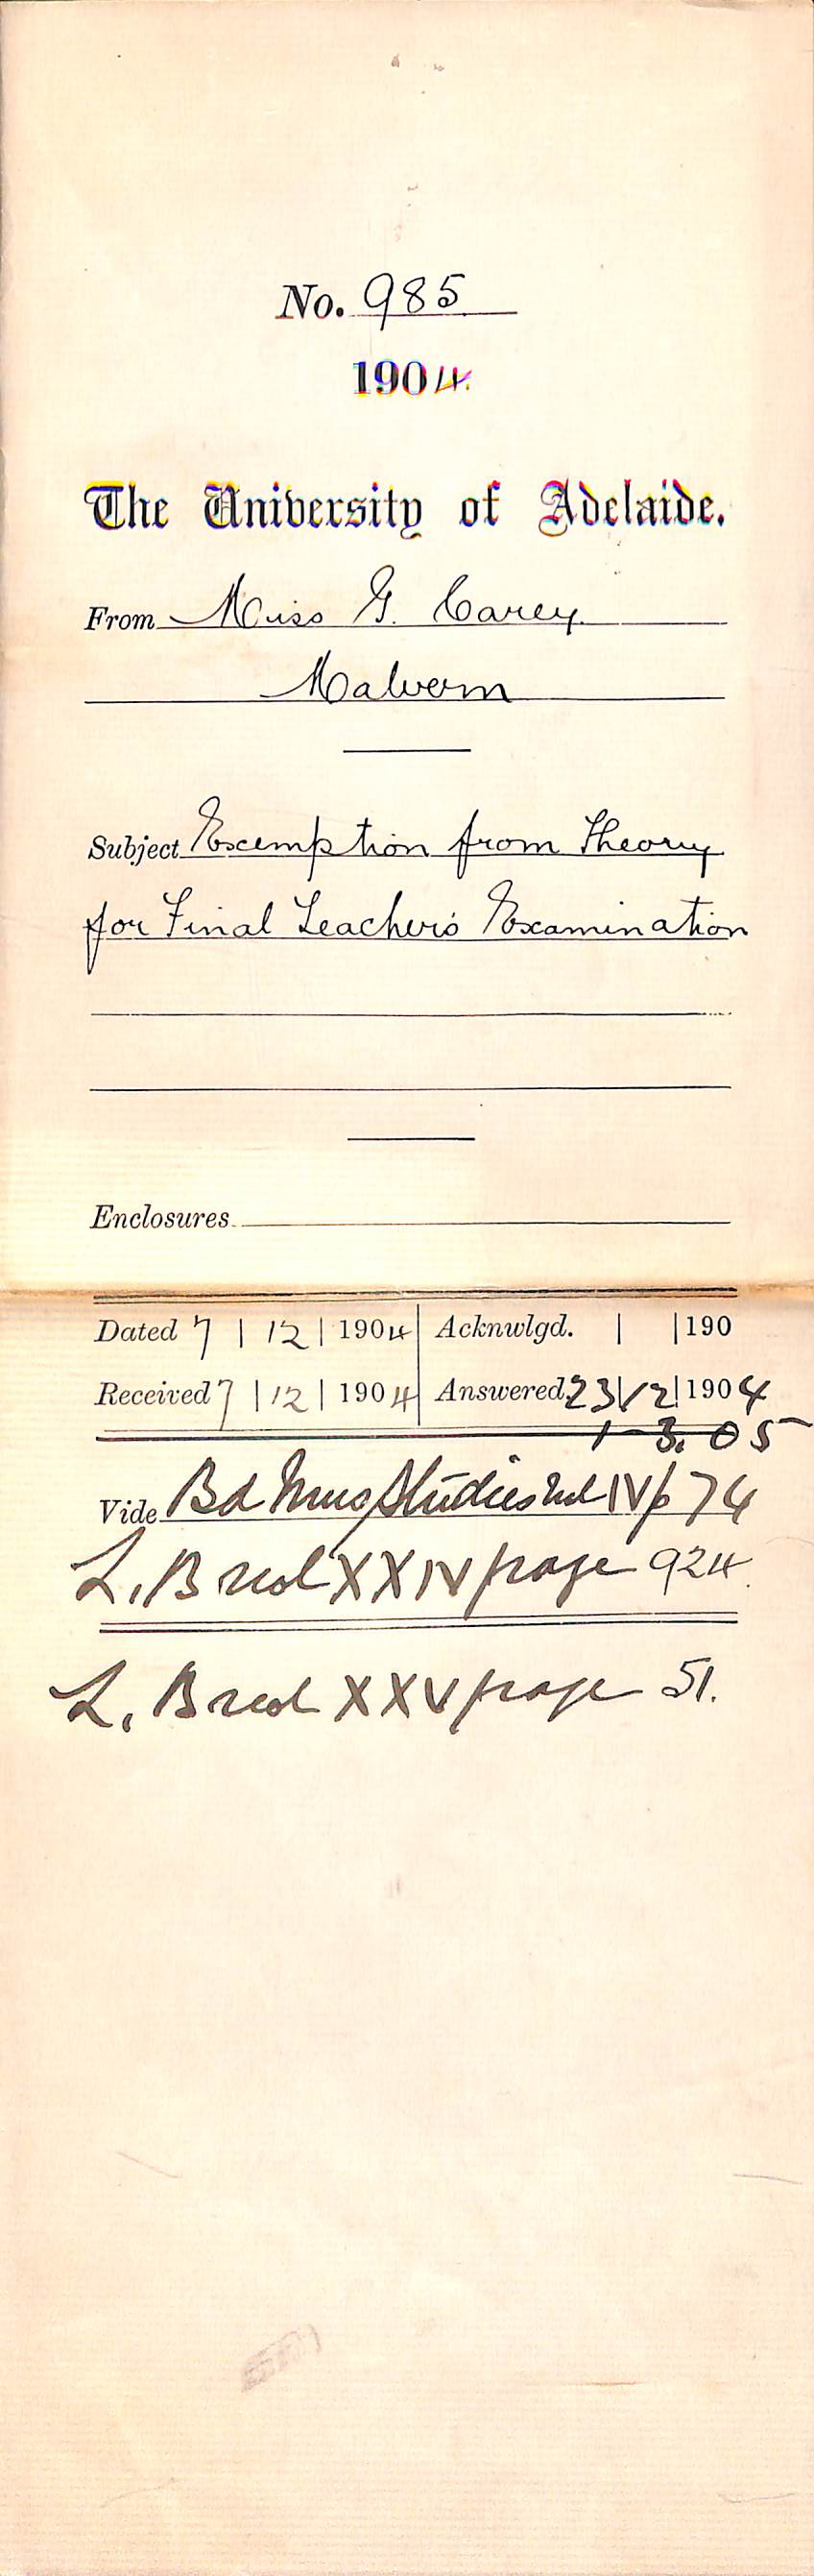 No. 985
1904.
The University of Adelaide.
From Miss G. Carey
Malvern
Subject Exemption from Theory
for Final Teacher's Examination
Enclosures
Dated 7 | 12 | 1904 Acknwlgd. | | 190
Received 7 | 12 | 1904 Answered 23 | 12 | 1904
1-3.05
Vide Bd Mus Studies Vol IV p 74
L. B vol XXIV page 924.
L. B vol XXV page 51.